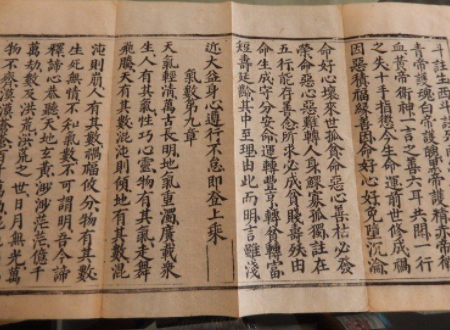 斗註生西斗註
青帝護魂白帝護魄黑帝護精赤帝衛
血黃帝衛神一言之善六耳共聞一行
之失十手指愆今生命運前世修成禍
因惡積福緣善因命好心好免墮沉淪
命好心壞來世孤貧命惡心善枯必發
榮命惡心惡難轉人身鰥寡孤獨註在
五行能存善念所求必成貧賤壽殀由
命生成守分安命運轉豐亨轉貧轉富
短壽延齡其中至理由此而明言雖淺
近大益身心遵行不怠即登上乘
氣數第九章
天氣輕清萬古長明地氣重濁廣載衆
生人有其氣性巧心靈物有其氣走舞
飛騰天有其數混沌則傾地有其數混
沌則崩人有其數禍福攸分物有其數
生死無情不和氣數不可謂明吾今諦
釋諦心恭聽天地玄黃渺渺茫茫億千
萬劫數及洪荒洪荒之世日月無光萬
物不齊漠漠